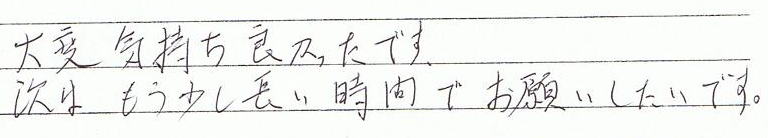 大変気持ち良かったです。
次は もう少し長い時間でお願いしたいです。